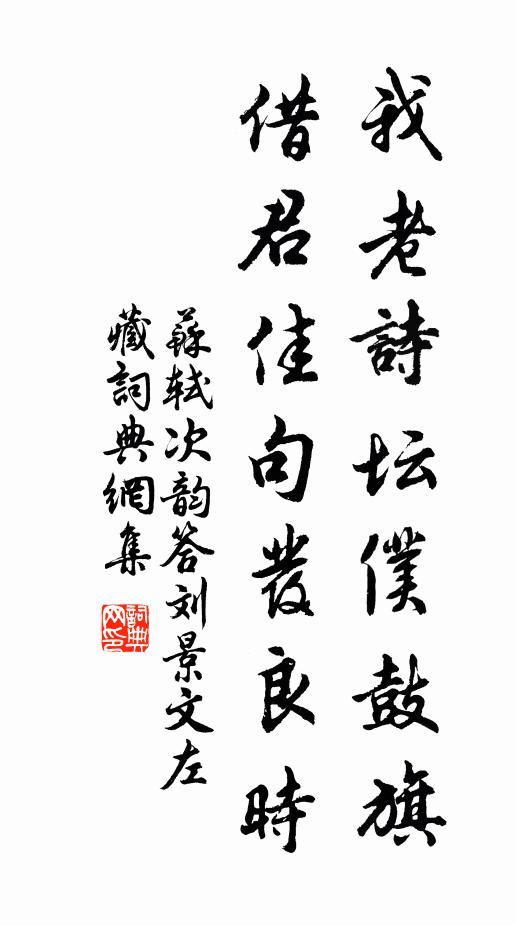 我老詩坛僕鼓旗
借君佳句發良時
蘇轼次韵答刘景文左
藏詞典網集
詞典网印